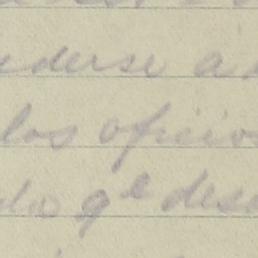 derse a
los oficios
do qe dese